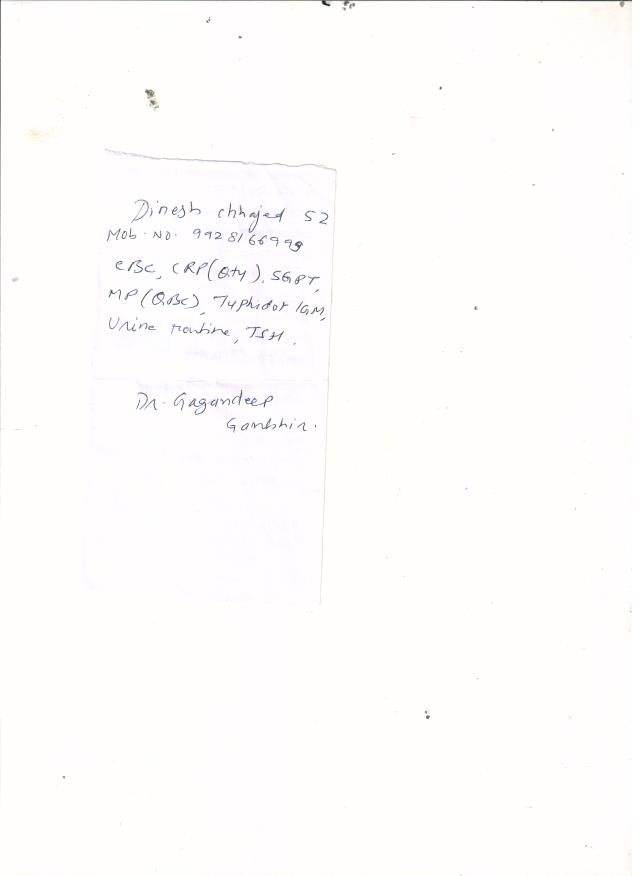 Dinesh chhajed 52
Mob. No. 9928166999
CBC, CRP(Qty), SGPT,
MP(QBC), Typhidot IGM,
Urine routine, TSH.
Dr. Gagandeep
Gambhir.